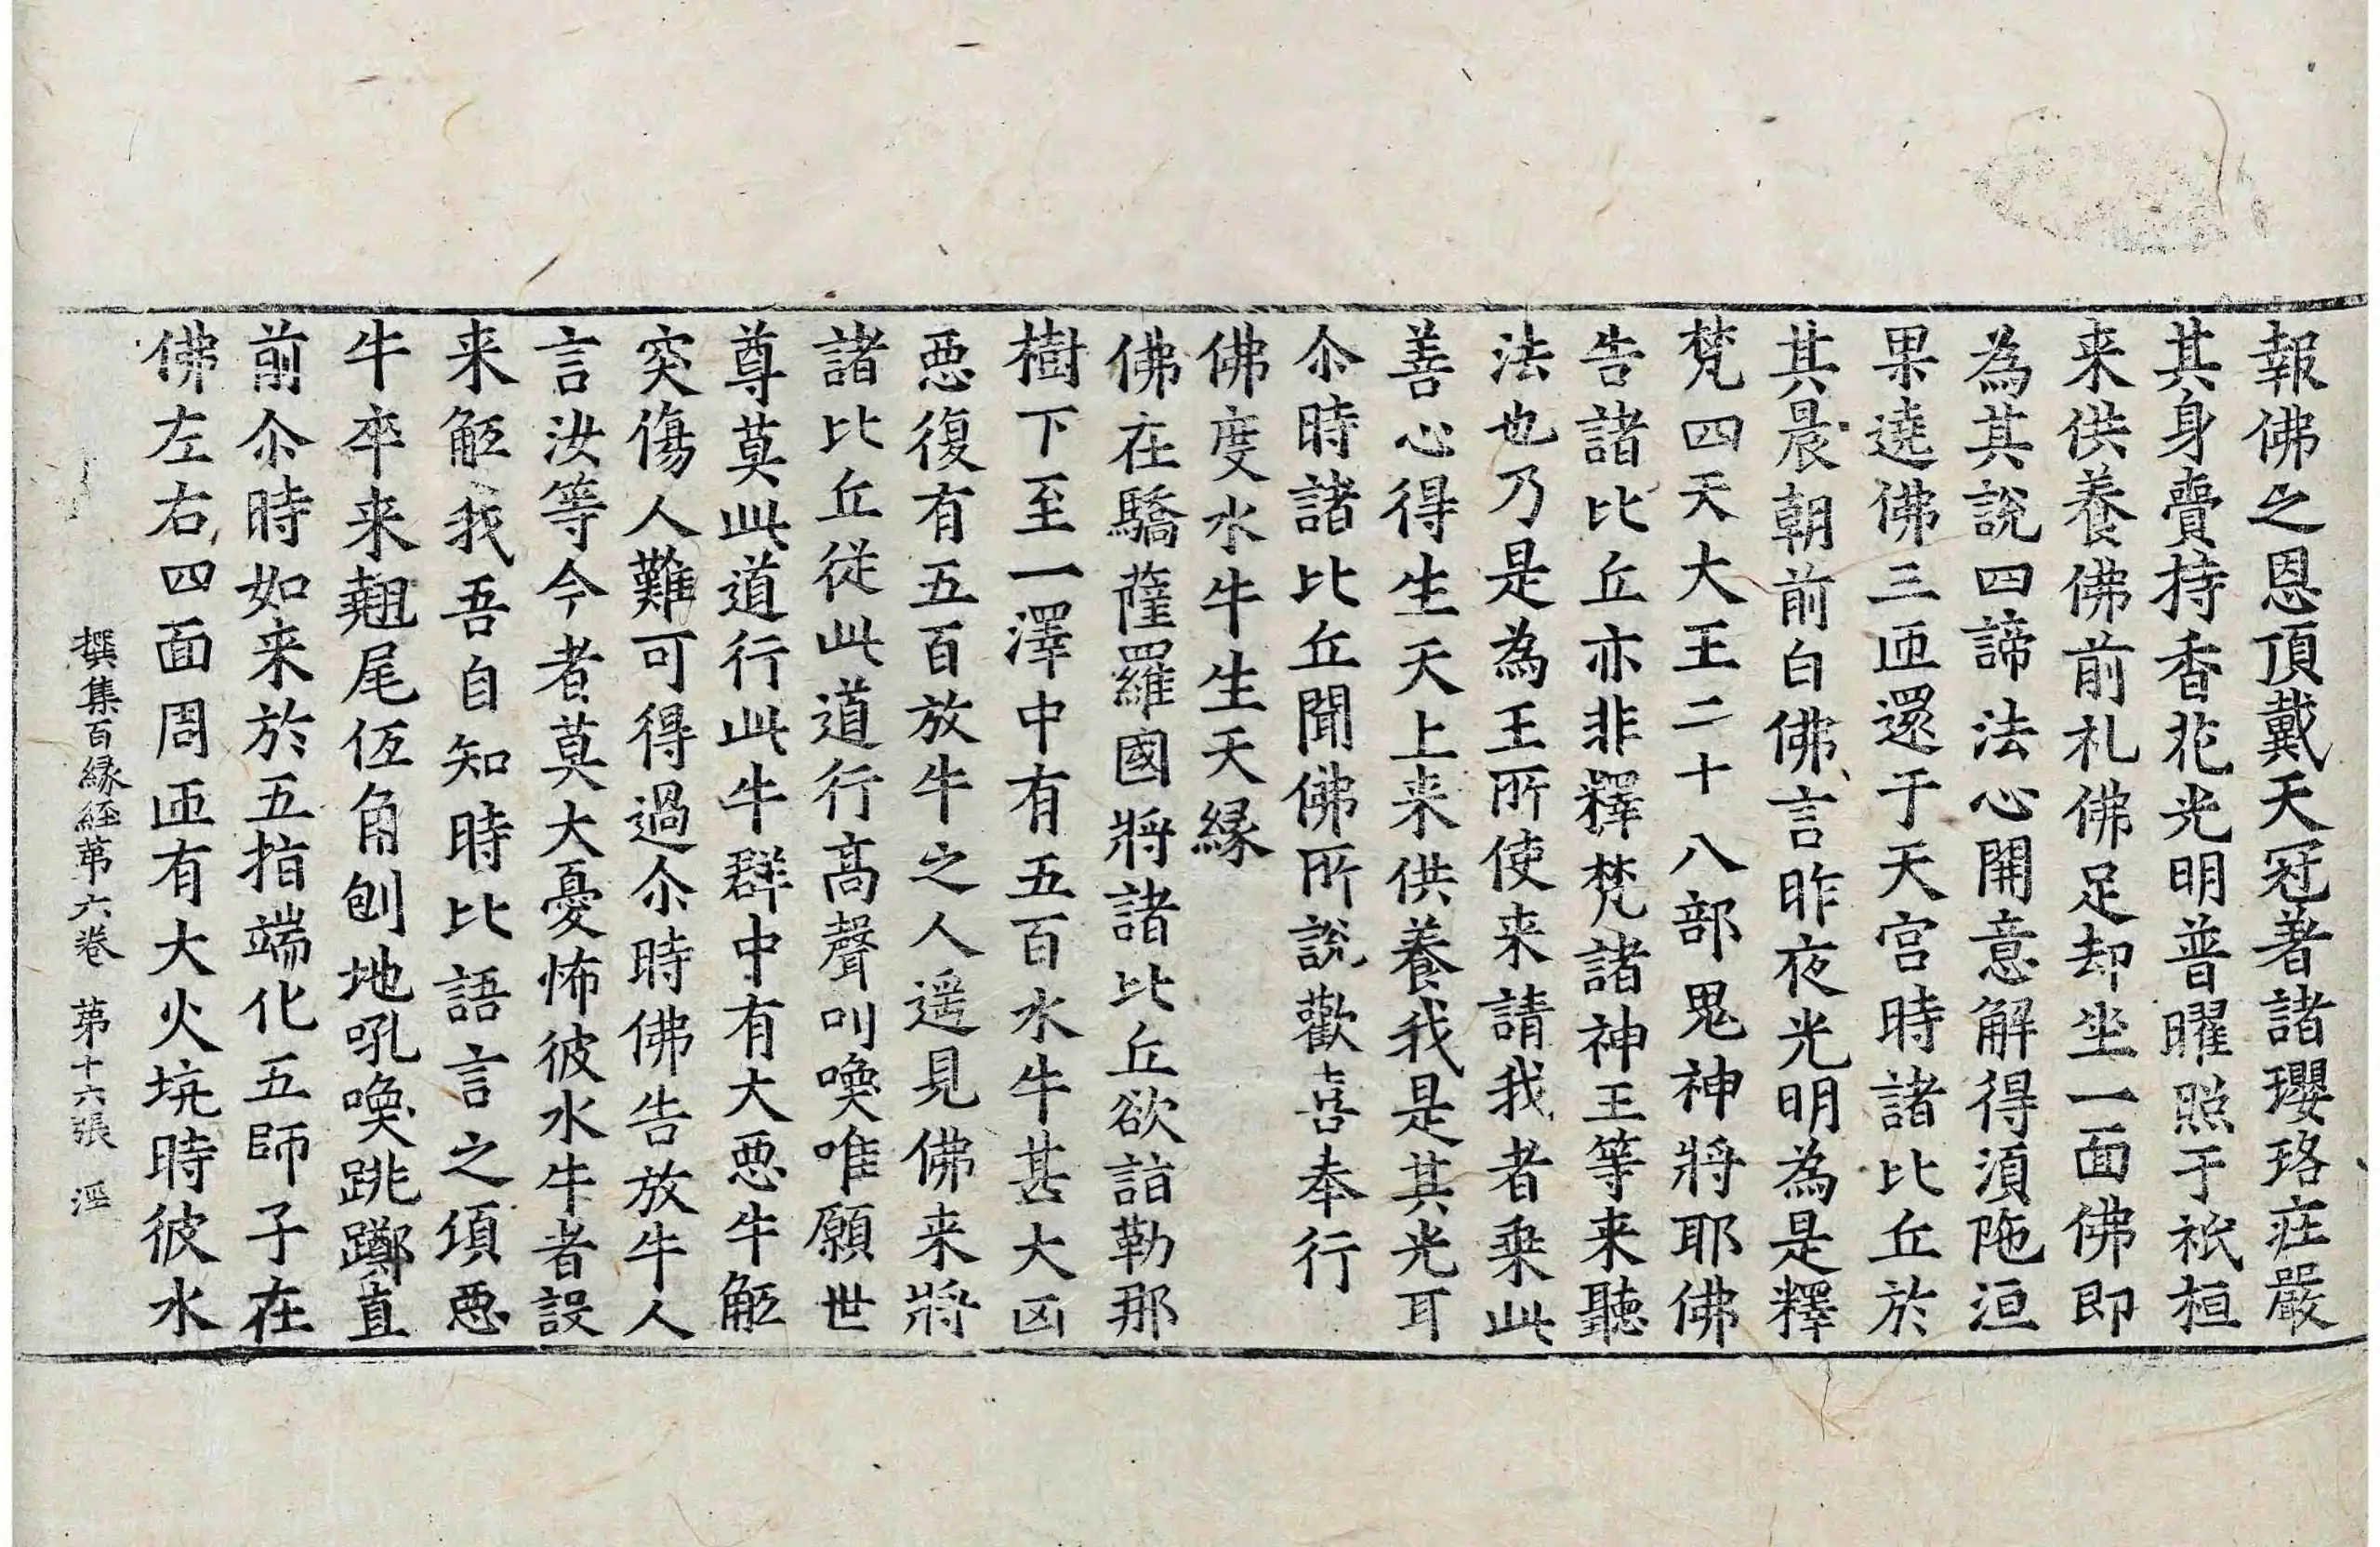 報佛之恩頂戴天冠著諸瓔珞㽵嚴
其身賷持香花光明普曜照于祇桓
来供養佛前札佛足却坐一面佛即
為其說四諦法心開意解得湏陁洹
果遶佛三匝還于天宫時諸比丘於
其晨朝前白佛言昨夜光明為是釋
梵四天大王二十八部鬼神將耶佛
告諸比丘亦非釋梵諸神王等来聽
法也乃是為王所使来請我者乗此
善心得生天上来供養我是其光耳
尒時諸比丘聞佛所說歡喜奉行
佛度水牛生天縁
佛在驕薩羅國將諸比丘欲詣勒那
樹下至一澤中有五百水牛甚大凶
惡復有五百放牛之人遥見佛来將
諸比丘從此道行髙聲叫喚唯願世
尊莫此道行此牛群中有大惡牛觝
突傷人難可得過尒時佛告放牛人
言汝等今者莫大憂怖彼水牛者設
来觝我吾自知時比語言之項惡
牛卒来翹尾仾角刨地吼喚跳躑直
前尒時如来於五指端化五師子在
佛左右四面周匝有大火坑時彼水
撰集百縁經苐六卷 苐十六張 涇